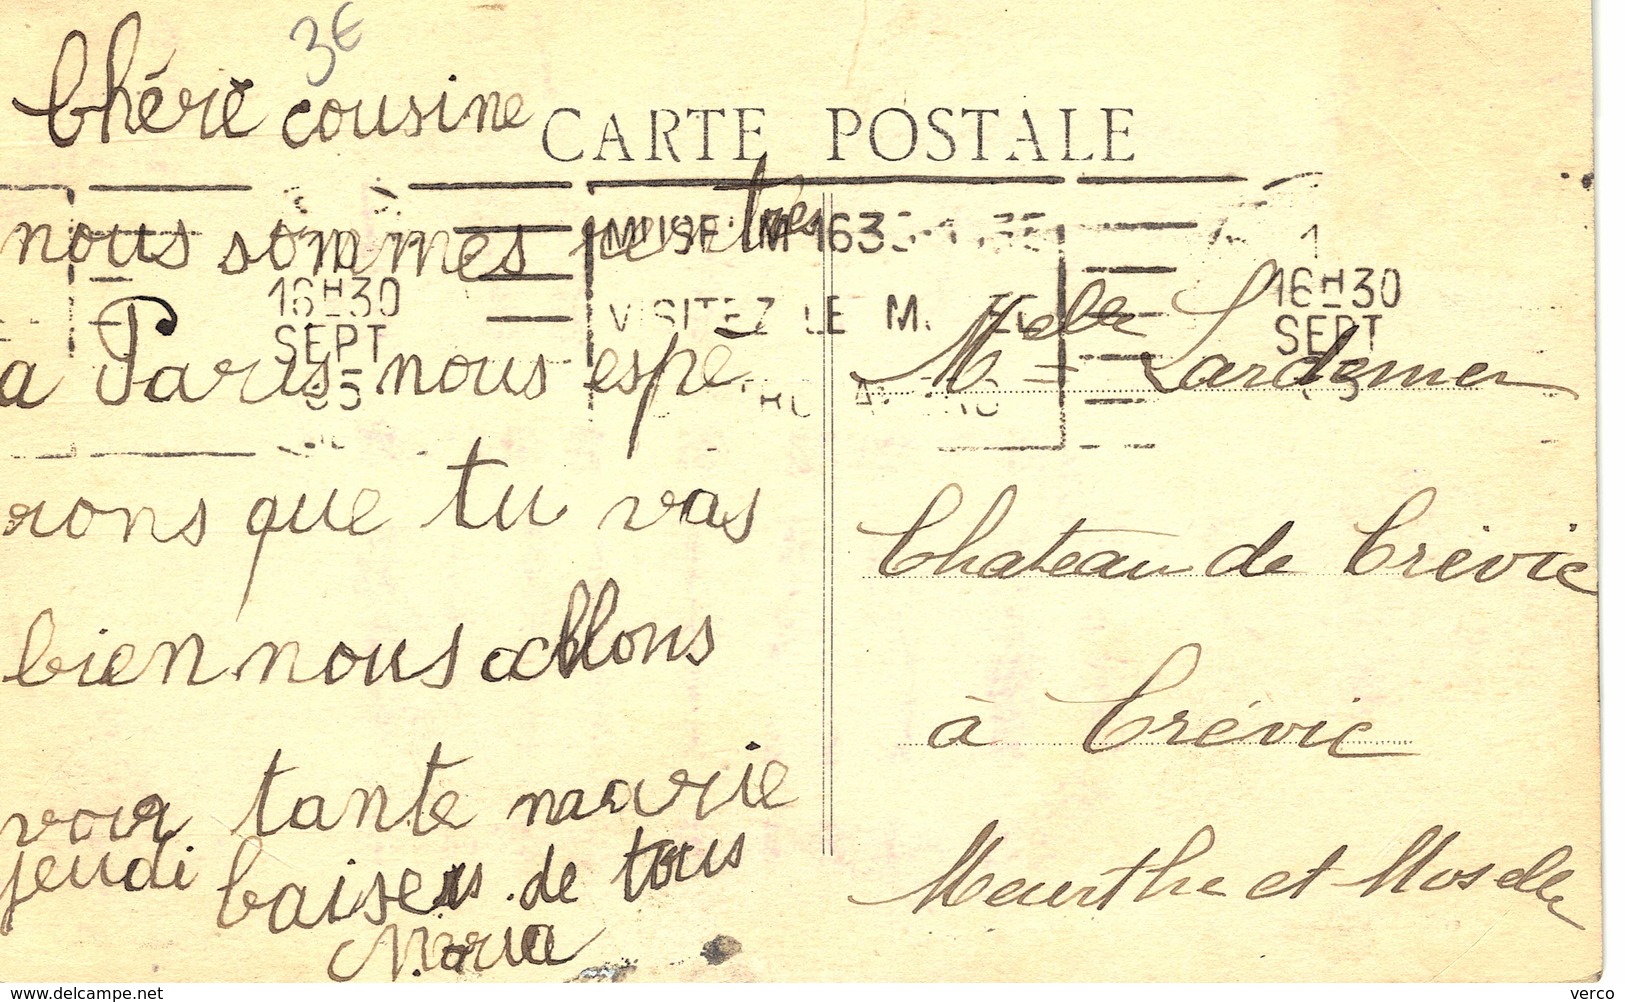 3€
Chére cousine
CARTE POSTALE
nous sommes rentres
a Paris nous espe
rons que tu vas
bien nous allons
voir tante marie
jeudi baisers de tous
Maria
16H30
SEPT
35
VISITEZ LE
1
16H30
SEPT
Melle Lardemer
Chateau de Crévic
à Crévic
Meurthe et Moselle
www.delcampe.net
verco